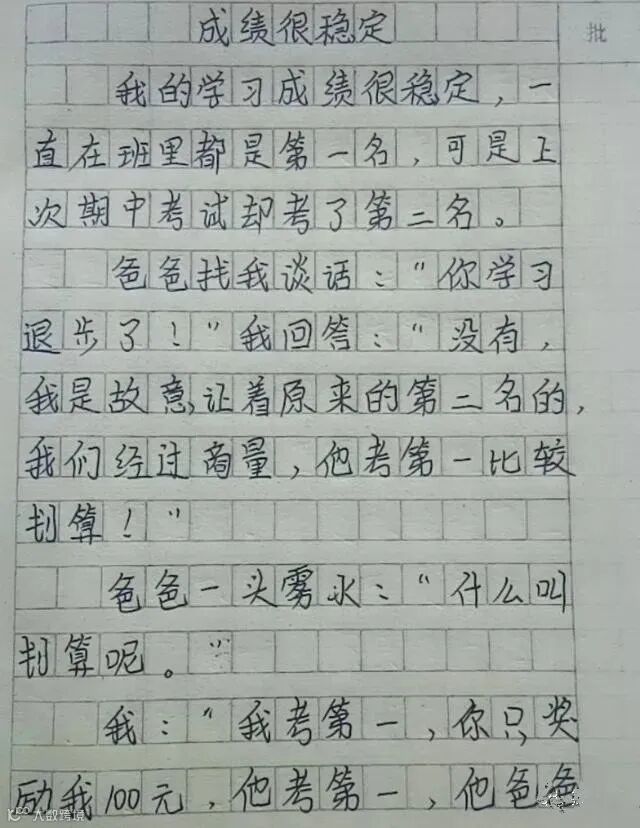 成绩很稳定
批
我的学习成绩很稳定，一
直在班里都是第一名，可是上
次期中考试却考了第二名。
爸爸找我谈话：“你学习
退步了！”我回答：“没有，
我是故意,让着原来的第二名的，
我们经过商量，他考第一比较
划算！”
爸爸一头雾水：“什么叫
划算呢。”
我：“我考第一，你只奖
励我100元，他考第一，他爸爸
大数跨境